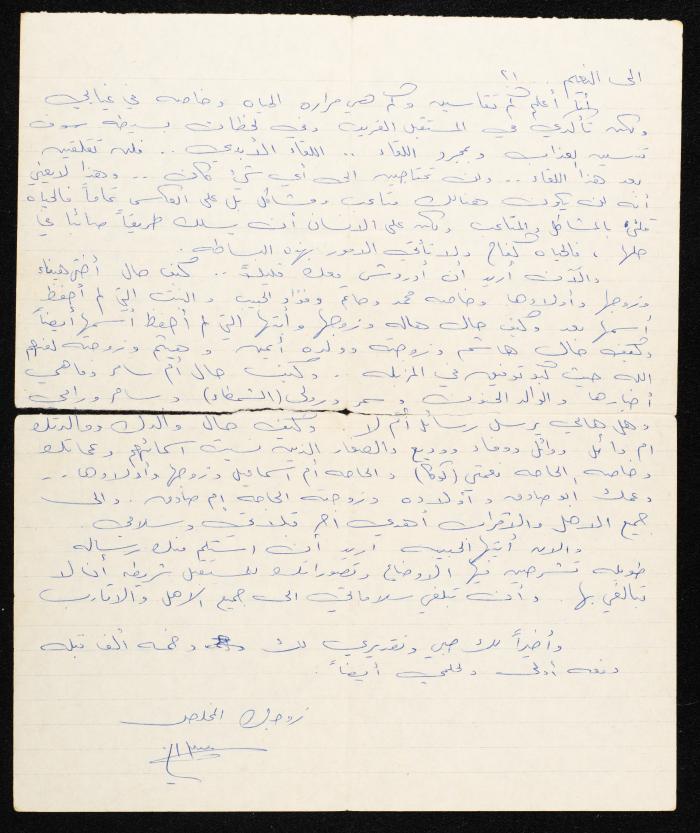 الى النعيم .. ٢١
أنا أعلم كم تقاسين وكم هي مراره الحياه وخاصه في غيابي
ولكن تأكدي في المستقبل القريب وفي لحظات بسيطه سوف
تنسين العذاب وبمجرد اللقاء .. اللقاء الأبدي .. فلن تقلقين
بعد هذا اللقاء .. ولن تحتاجين الى أي شئ كان .. وهذا لا يعني
أنه لن يكون هنالك متاعب ومشاكل بل على العكس تماماً فالحياه
مليئه بالمشاكل والمتاعب ولكن على الانسان أن يسلك طريقاً صائباً في
حلها ، فالحياه كفاح ولا تأتي الامور بهذه البساطه .
والآن أريد أن أدردش معك قليلاً .. كيف حال أختي هيفاء
وزوجها وأولادها وخاصه محمد وحاتم وفؤاد الحبيب والبنت التي لم أحفظ
أسمها بعد وكيف حال هاله وزوجها وأبنتها التي لم أحفظ أسمها أيضاً
وكيف حال هاشم وزوجته وولده أيمن وهيثم وزوجته
الله حيث في المنزله .. وكيف حال أم سامر وماهي
أخبارها والوالد الحنون وسمر ورولى (الشمطاء) وسامر ورامي
وهل هاني يرسل رسائل أم لا وكيف حال والدك ووالدتك
ام وائل ووائل ووفاء ووديع والصغار الذين نسيت اسمائهم وعماتك
وخاصه الحاجه نعمتي والحاجه أم اسماعيل وزوجها وأولادها ...
وعمك ابو صادق وأولاده وزوجته الحاجه إم صادق . والى
جميع الاهل والأقارب أهدي أحر قبلاتي وسلامي .
والان أيتها الحبيبه أريد أن استلم منك رساله
طويله تشرحين فيها الاوضاع وتصوراتك للمستقبل شريطه أن لا
تبالغي بها . وأن تبلغي سلاماتي الى جميع الاهل والاقارب
وأخيراً لك حبي وتقديري لك وخمسه ألف قبله
دفعه أولى ولحلمي أيضاً .
زوجك المخلص